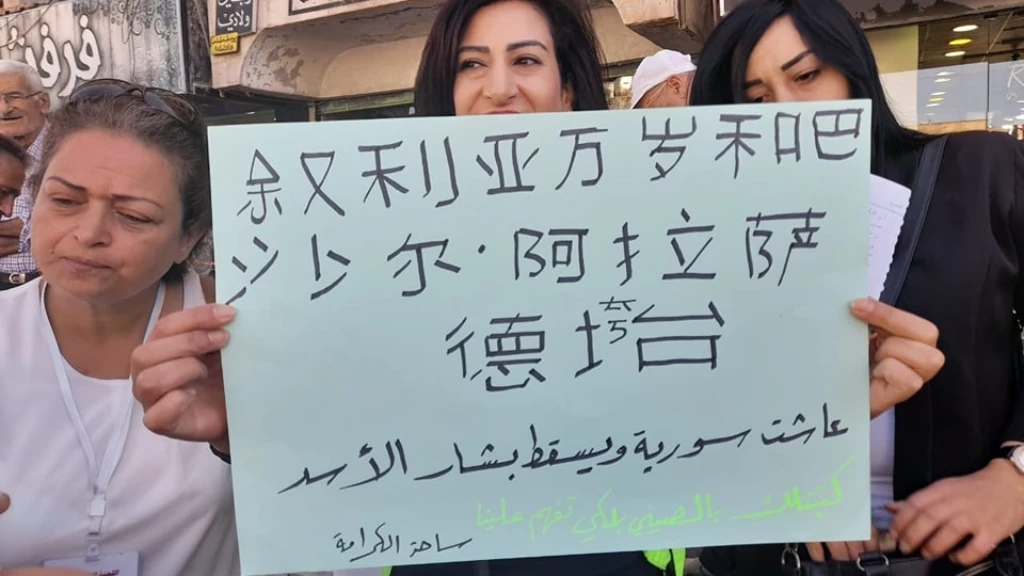 ولادي
叙利亚万岁和吧
沙尔·阿拉萨
德垮台
عاشت سورية ويسقط بشار الأسد
كتبتلك بالصيني بلكي تفهم علينا
ساحة الكرامة